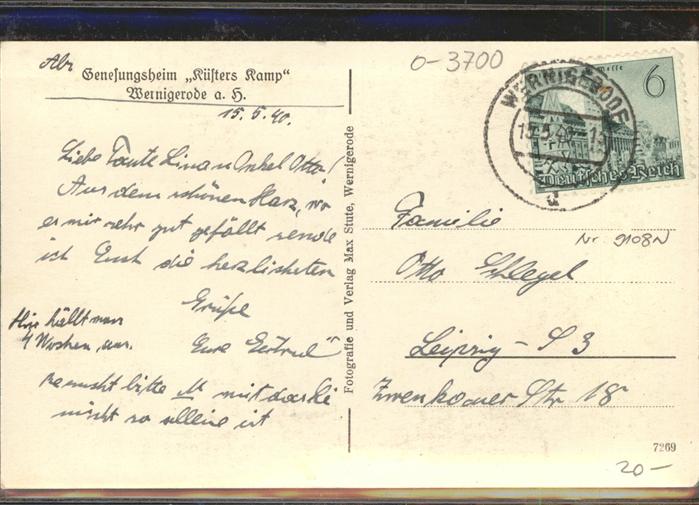 Abs
Genesungsheim „Küsters Kamp"
Wernigerode a. H.
15.5.40.
Liebe Tante Lina u Onkel Otto!
Aus dem schönen Harz, wo
es mir sehr gut gefällt sende
ich Euch die herzlichsten
Grüße
Eure Gertrud
Hier hält man
4 Wochen aus.
besucht bitte M mit
nicht so alleine ist
Fotografie und Verlag Max Stute, Wernigerode
0-3700
WERNIGERODE
15.5.40
d
Messe
6
Deutsches Reich
Familie
Nr. 9108N
Otto Schlegel
Leipzig - S 3
Zwenkauer Str 18
7269
20-